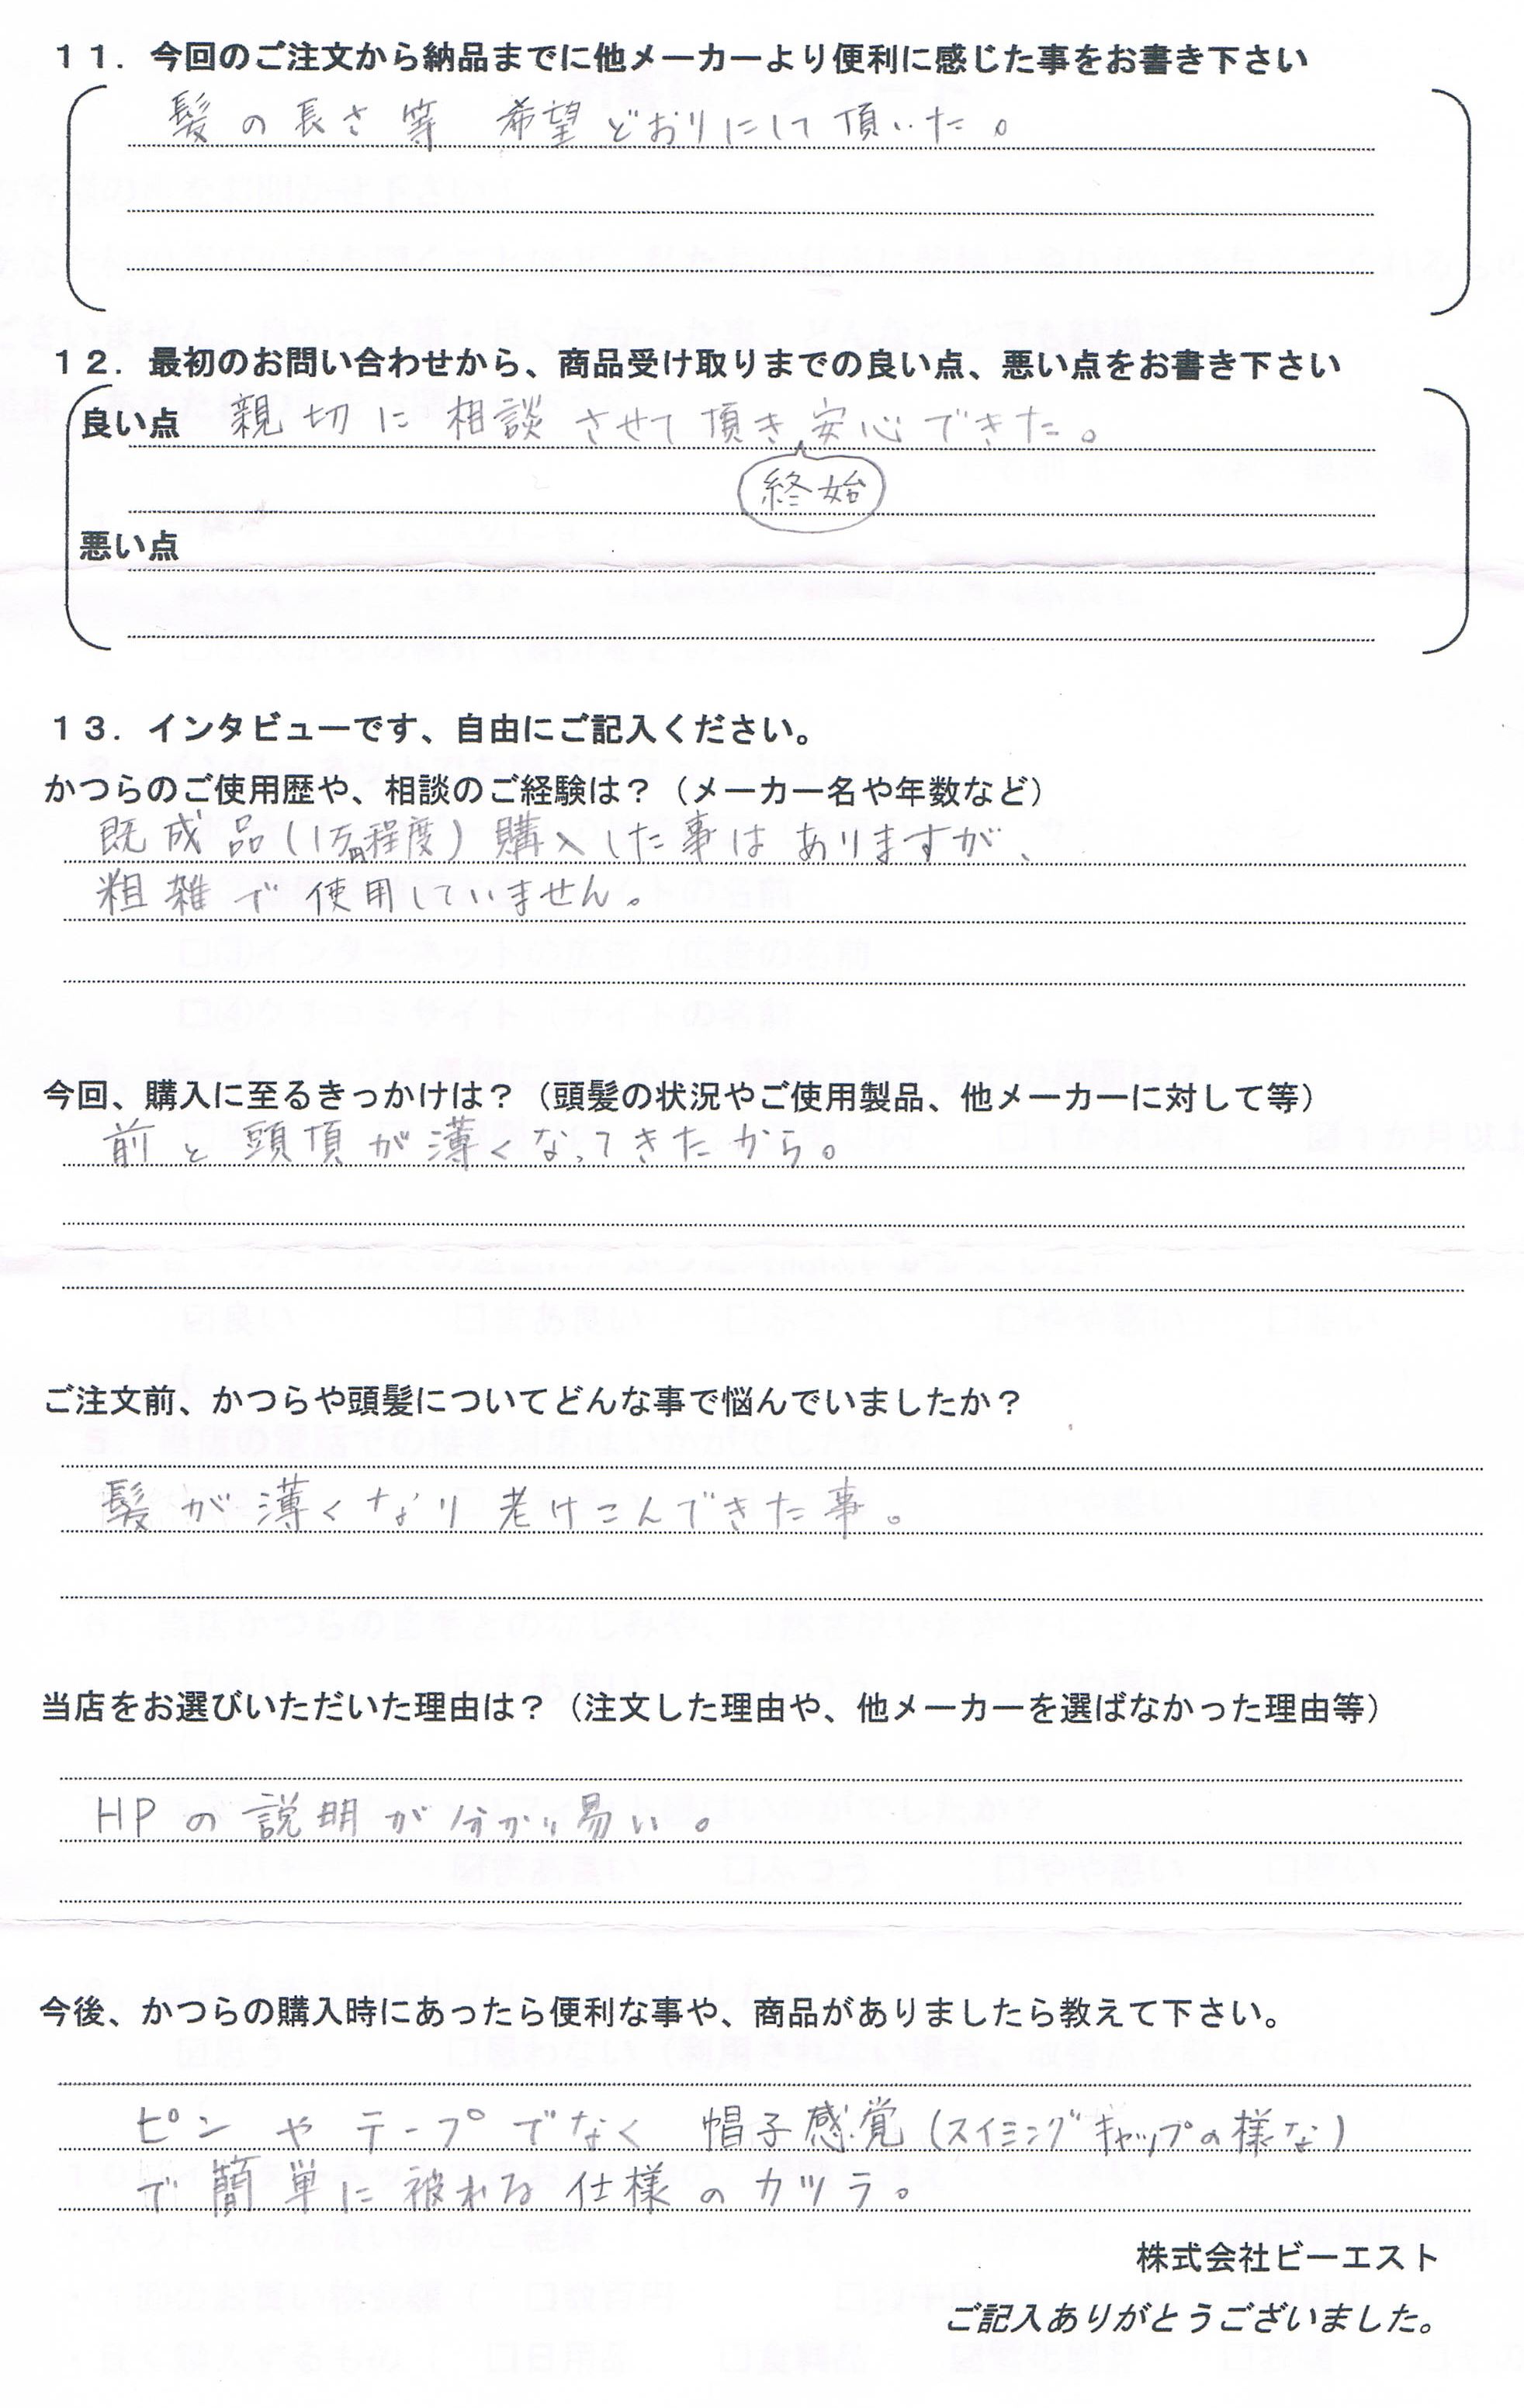 １１．今回のご注文から納品までに他メーカーより便利に感じた事をお書き下さい
髪の長さ等 希望どおりにして頂いた。
１２．最初のお問い合わせから、商品受け取りまでの良い点、悪い点をお書き下さい
良い点 親切に相談させて頂き安心できた。
終始
悪い点
１３．インタビューです、自由にご記入ください。
かつらのご使用歴や、相談のご経験は？（メーカー名や年数など）
既成品(1万円程度)購入した事はありますが、
粗雑で使用していません。
今回、購入に至るきっかけは？（頭髪の状況やご使用製品、他メーカーに対して等）
前と頭頂が薄くなってきたから。
ご注文前、かつらや頭髪についてどんな事で悩んでいましたか？
髪が薄くなり老けこんできた事。
当店をお選びいただいた理由は？（注文した理由や、他メーカーを選ばなかった理由等）
HPの説明が分かり易い。
今後、かつらの購入時にあったら便利な事や、商品がありましたら教えて下さい。
ピンやテープでなく 帽子感覚(スイミングキャップの様な)
で簡単に被れる仕様のカツラ。
株式会社ビーエスト
ご記入ありがとうございました。